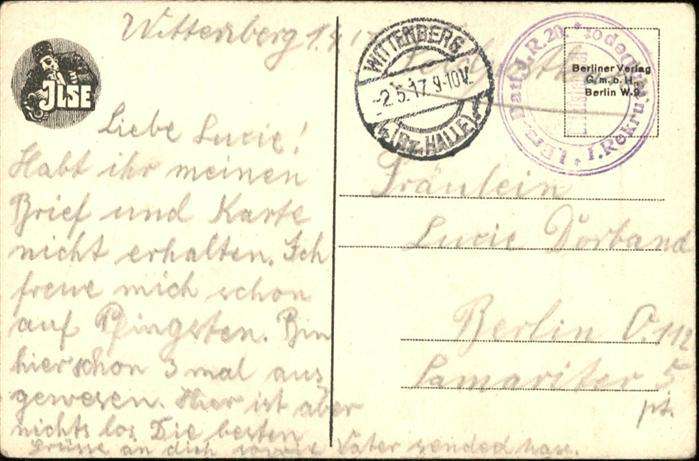 Wittenberg 1.4.17
Feldpost
WITTENBERG
-2.5.17. 9-10V.
(Bz. HALLE)
I. Ers. Batl. J.R. 20
I. Rekru
Berliner Verlag
G.m.b.H.
Berlin W.9
JLSE
Liebe Lucie!
Habt ihr meinen
Brief und Karte
nicht erhalten. Ich
freue mich schon
auf Pfingsten. Bin
hier schon 3 mal aus
gewesen. Hier ist aber
nichts los Die besten
Grüsse an dich sowie Vater sended
Fräulein
Lucie Dörband
Berlin O.
Samariter 5
pt.